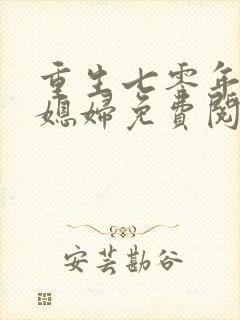 重生七零年
媳妇免费阅
安芸勘谷